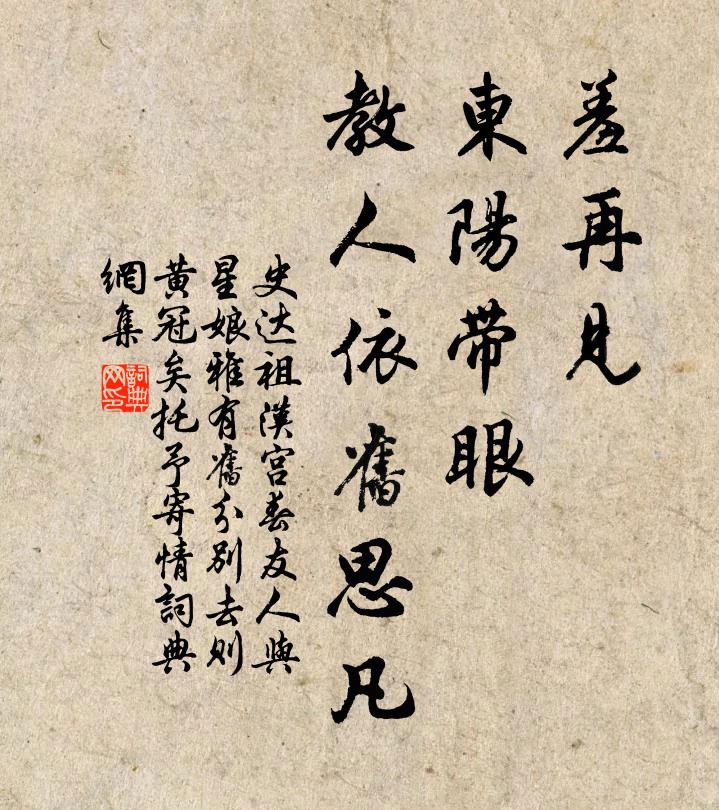 羞再見
東陽帶眼
教人依舊思凡
史达祖漢宮春友人與
星娘雅有舊分別去則
黃冠矣托予寄情詞典
網集
詞典
网印